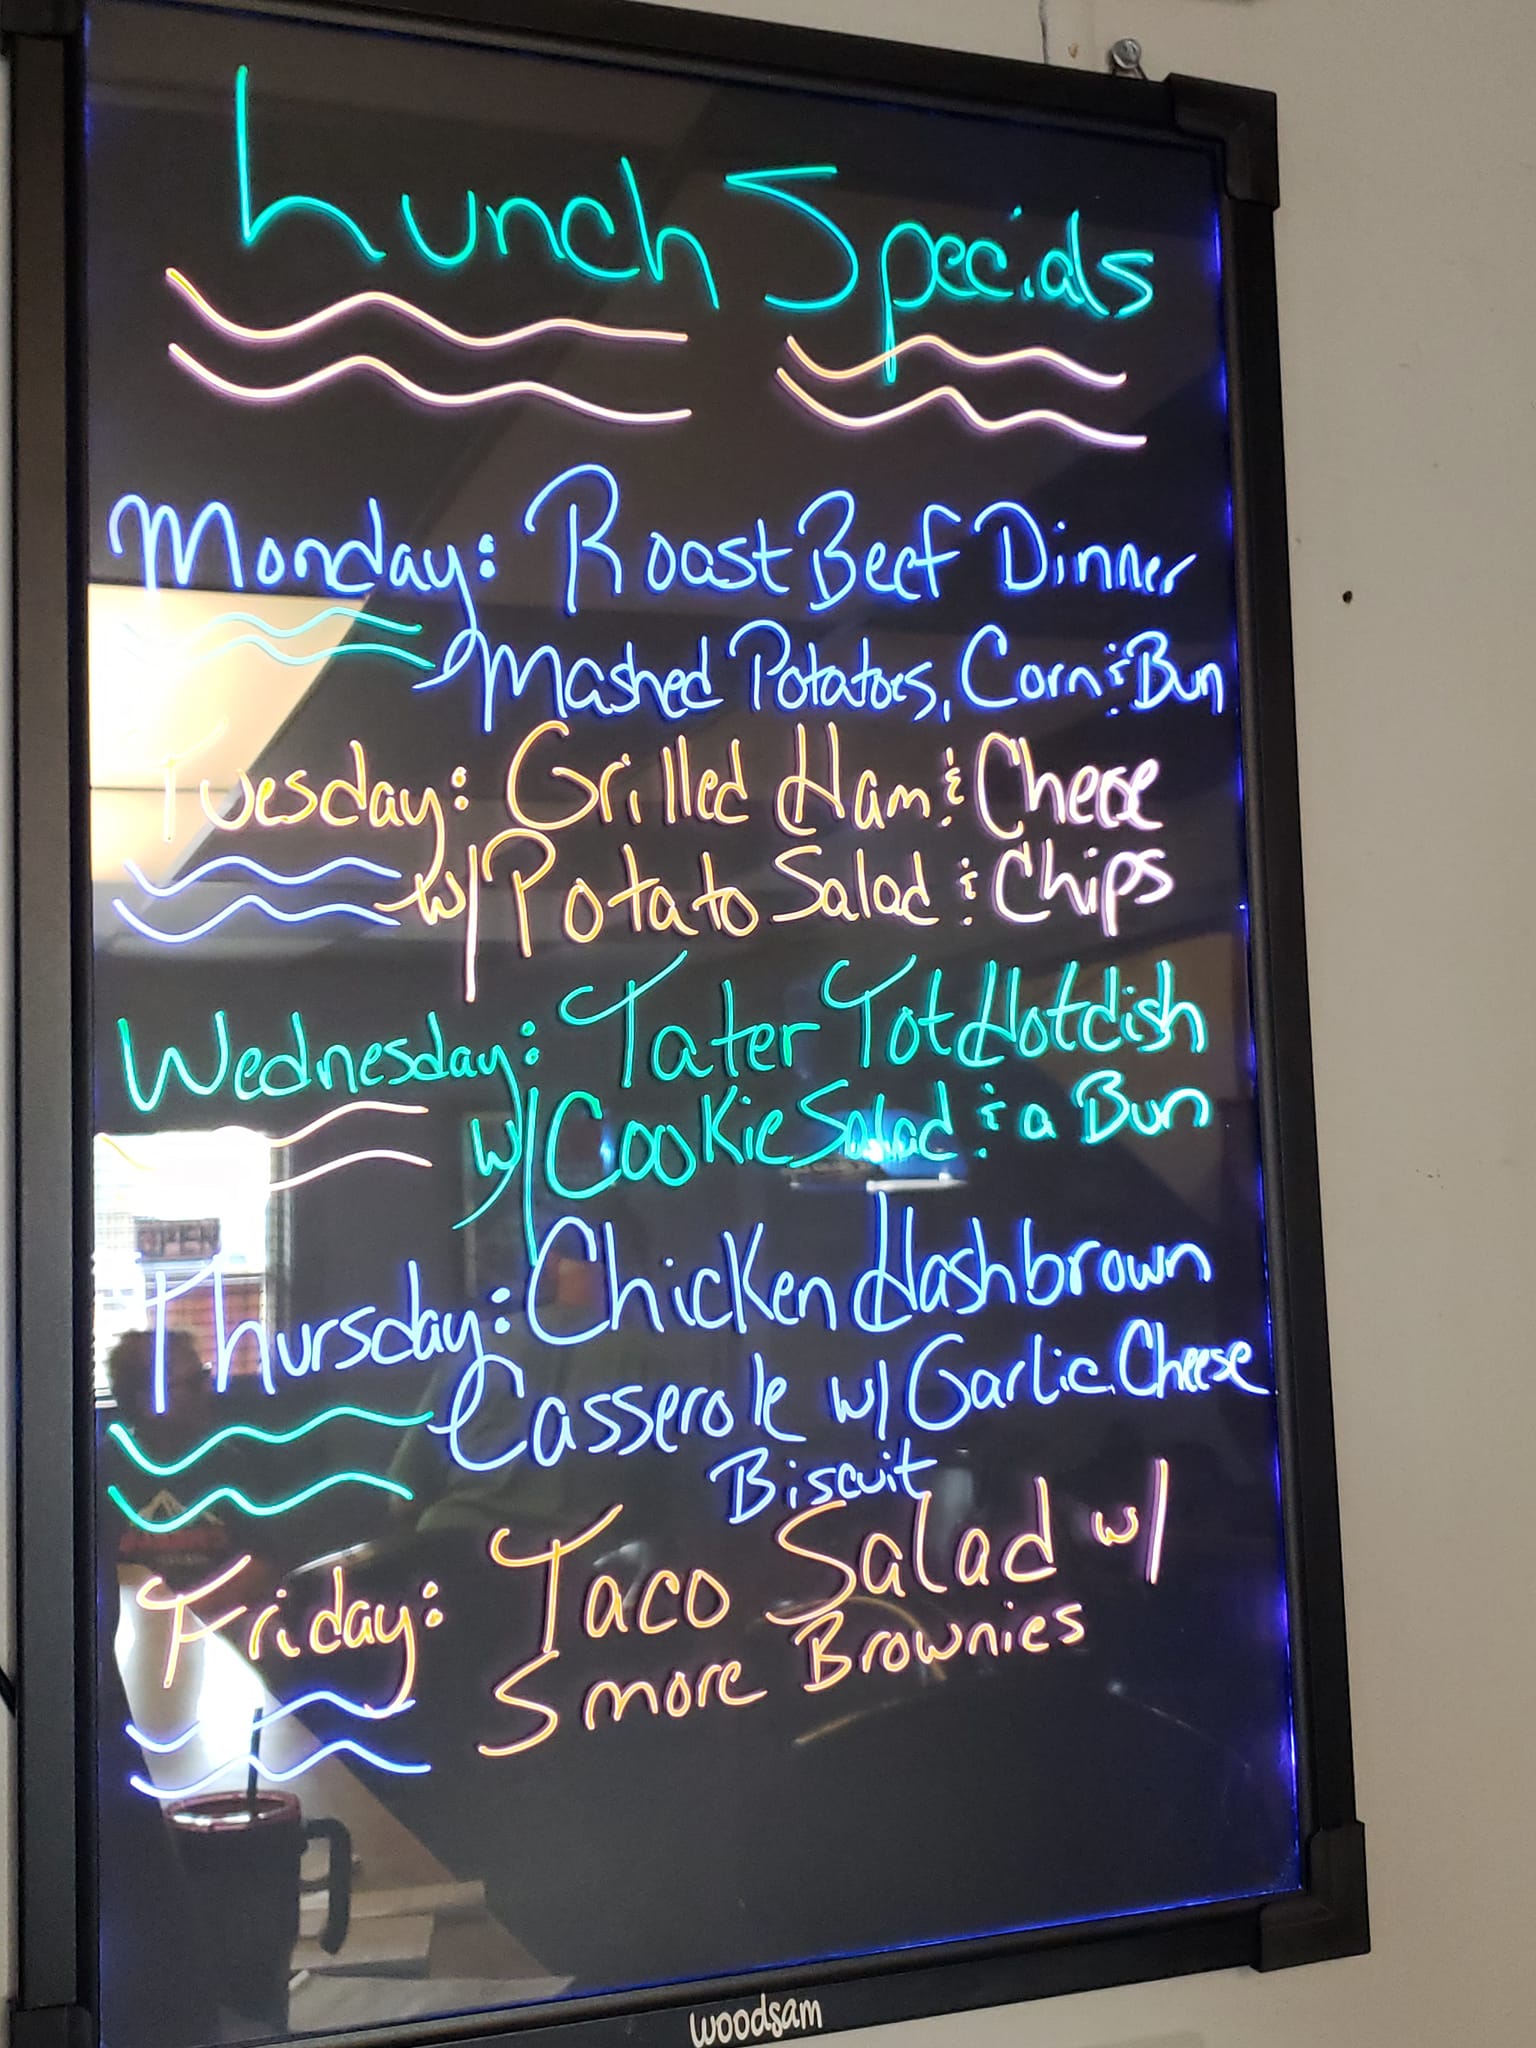 Lunch Specials
Monday: Roast Beef Dinner
Mashed Potatoes, Corn & Bun
Tuesday: Grilled Ham & Cheese
w/ Potato Salad & Chips
Wednesday: Tater Tot Hotdish
w/ Cookie Salad & a Bun
Thursday: Chicken Hashbrown
Casserole w/ Garlic Cheese
Biscuit
Friday: Taco Salad w/
Smore Brownies
woodsam